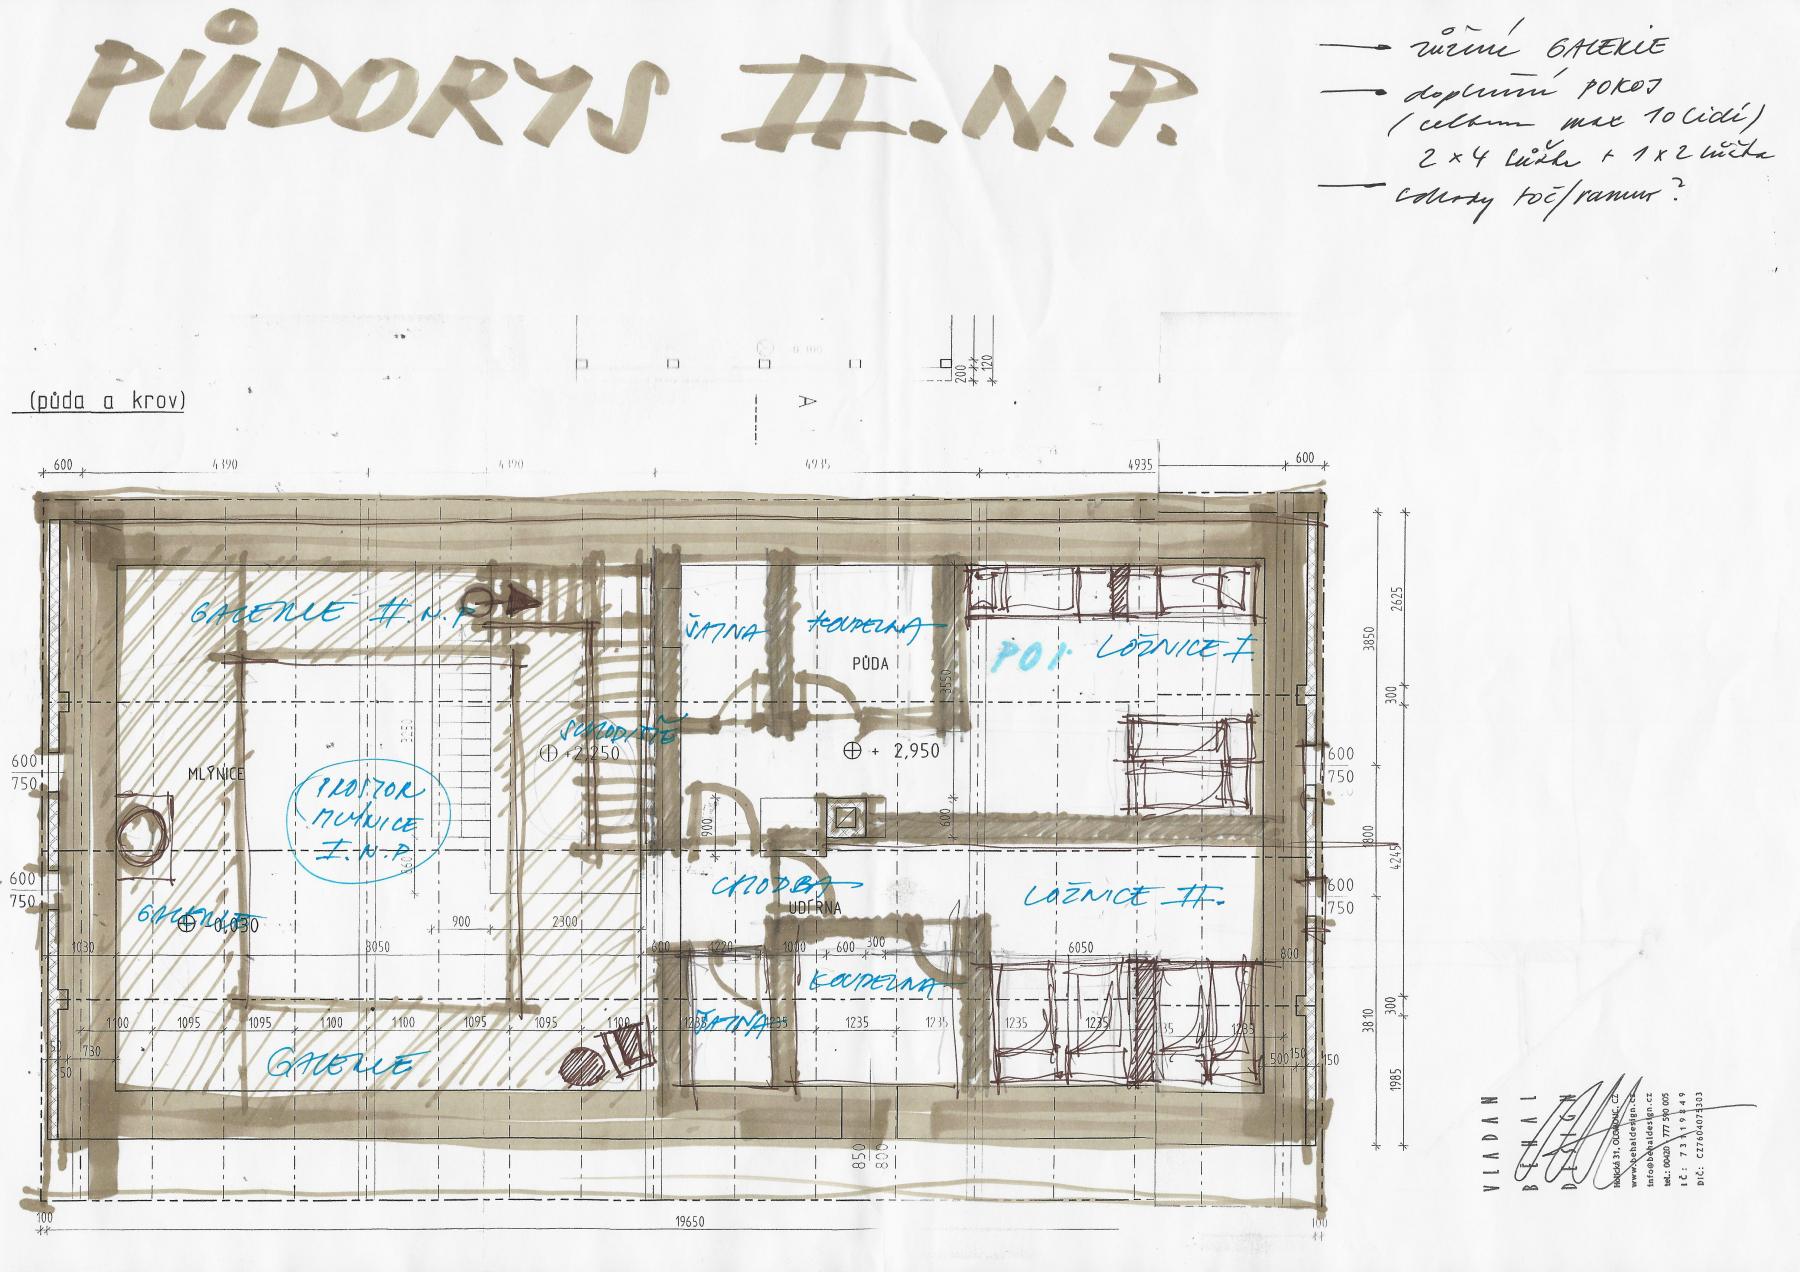 PŮDORYS II.N.P.
GALERIE
POKOJ
max 10 lidí)
2 x 4 lůžka + 1 x 2 lůžka
?
200
120
(půda a krov)
A
600
4390
4390
4935
4935
600
GALERIE II.N.P.
ŠATNA
KOUPELNA
PŮDA
LOŽNICE I.
2625
3850
300
3550
SCHODIŠTĚ
+2,250
+ 2,950
600
750
MLÝNICE
PROSTOR
MLÝNICE
I.N.P.
600
750
900
600
1800
4245
600
750
CHODBA
UDÍRNA
LOŽNICE II.
600
750
GALERIE
0,030
900
2300
1030
8050
600
1220
1000
600
300
6050
800
KOUPELNA
ŠATNA
1100
1095
1095
1100
1100
1095
1095
1100
1235
1235
1235
1235
1235
1235
1235
3810
300
730
50
GALERIE
500
150
50
1985
850
800
100
19650
100
VLADAN
BĚHAL
DESIGN
Holická 31, OLOMOUC, CZ
www.behaldesign.cz
info@behaldesign.cz
tel.: 00420 / 777 590 005
DIČ: CZ7604075303